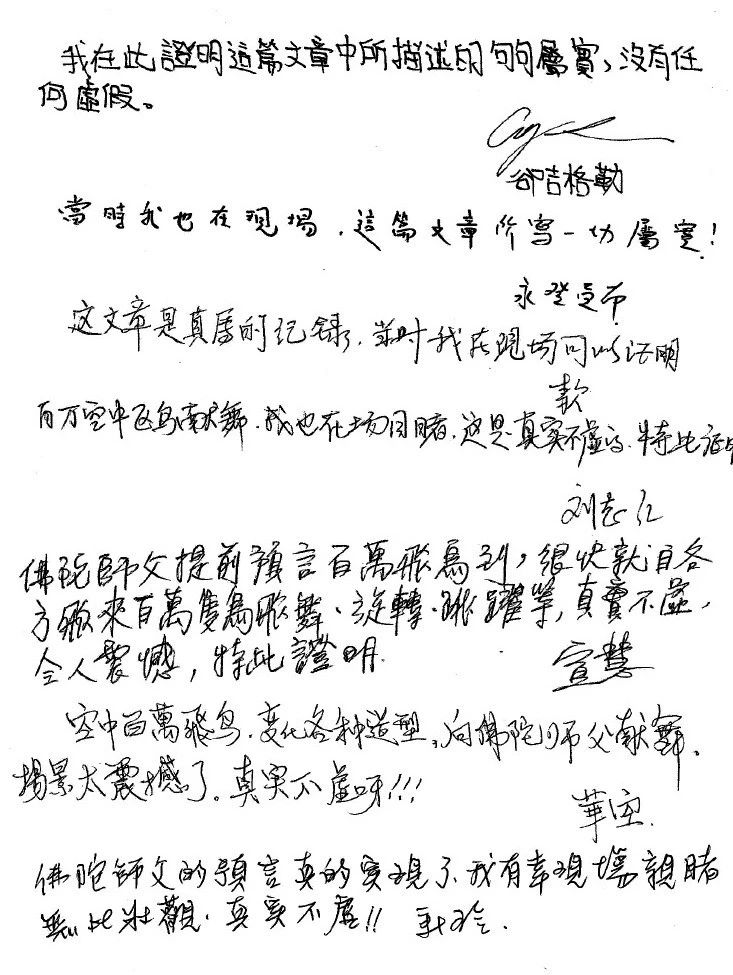 我在此證明這篇文章中所描述的句句屬實，沒有任
何虛假。
卻吉格勒
當時我也在现場，這篇文章所寫一切屬實！
永登色布
这文章是真唇的纪録，当时我在现场可以证明
百万空中飞鸟献舞，我也在场目睹，这是真实不虚的，特此证明
刘志仁
佛陀師父提前預言百萬飛鳥到，很快就自各
方飛來百萬隻鳥飛舞、旋轉、跳躍等，真實不虛，
令人震憾，特此證明
宣慧
空中百萬飛鸟，变化各种造型，向佛陀师父献舞，
場景太震撼了。真实不虚呀!!!
華
佛陀師父的預言真的实現了，我有幸現場親睹
無比壯觀，真实不虛!!